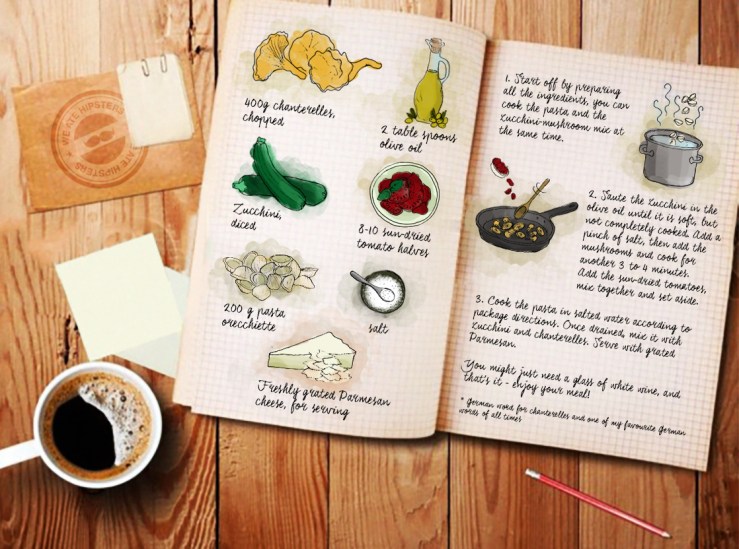 WE ATE HIPSTERS
400g chanterelles,
chopped
2 table spoons
olive oil
Zucchini,
diced
8-10 sun-dried
tomato halves
200 g pasta
orecchiette
salt
Freshly grated Parmesan
cheese, for serving
1. Start off by preparing
all the ingredients, you can
cook the pasta and the
zucchini-mushroom mix at
the same time.
2. Saute the zucchini in the
olive oil until it is soft, but
not completely cooked. Add a
pinch of salt, then add the
mushrooms and cook for
another 3 to 4 minutes.
Add the sun-dried tomatoes,
mix together and set aside.
3. Cook the pasta in salted water according to
package directions. Once drained, mix it with
zucchini and chanterelles. Serve with grated
Parmesan.
You might just need a glass of white wine, and
that's it - enjoy your meal!
* German word for chanterelles and one of my favourite German
words of all times